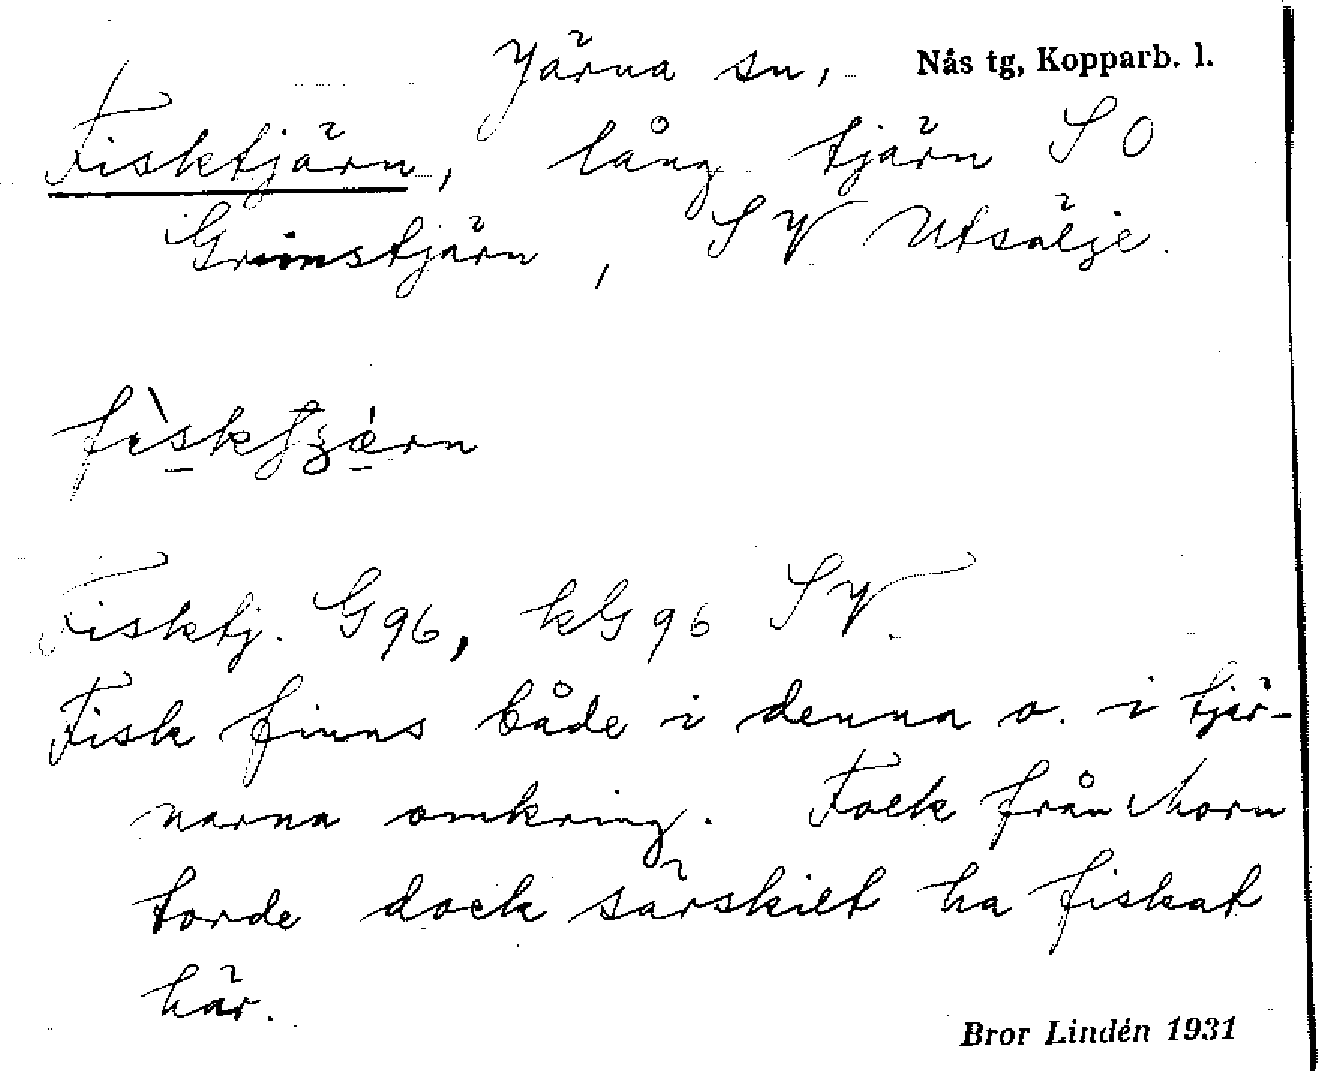 Järna sn, Nås tg, Kopparb. l.
Fisktjärn, lång tjärn SO
Grimstjärn, SV Utsälje.
fìsktjæ̀rn
Fisktj. G96, kG96 SV.
Fisk finns både i denna o. i tjär-
narna omkring. Folk från Morn
torde dock särskilt ha fiskat
här.
Bror Lindén 1931